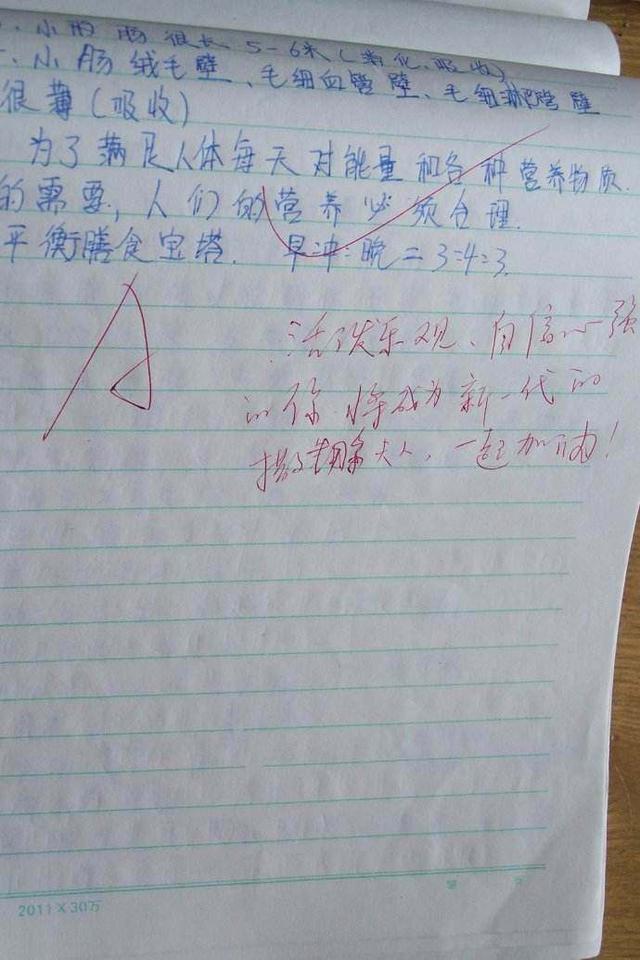 小肠很长 5-6米(消化、吸收)
小肠绒毛壁、毛细血管壁、毛细淋巴管壁
很薄(吸收)
为了满足人体每天对能量和各种营养物质
的需要,人们的营养必须合理.
平衡膳食宝塔. 早:中:晚=3:4:3
A
活泼乐观、自信心强
的你将成为新一代的
夫人,一起加油!
2011×30万
第 页